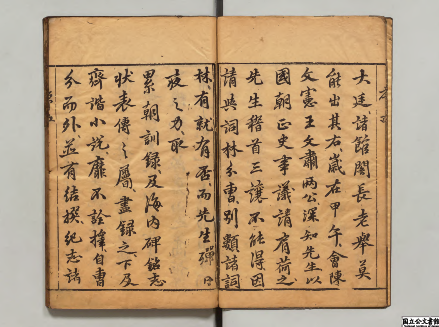 大廷諸館閣長老舉莫
能出其右歲在甲午會陳
文憲王文肅兩公深知先生以
國朝正史事議請屑荷之
先生稽首三讓不能得因
請與詞林分曹別類諸詞
林有就有否而先生殫日
夜之力取
累朝訓錄及海內碑銘志
狀表傳之屬盡錄之下及
齊諧小說靡不詮擇自曹
分而外並有結撰紀志諸
国立公文書館